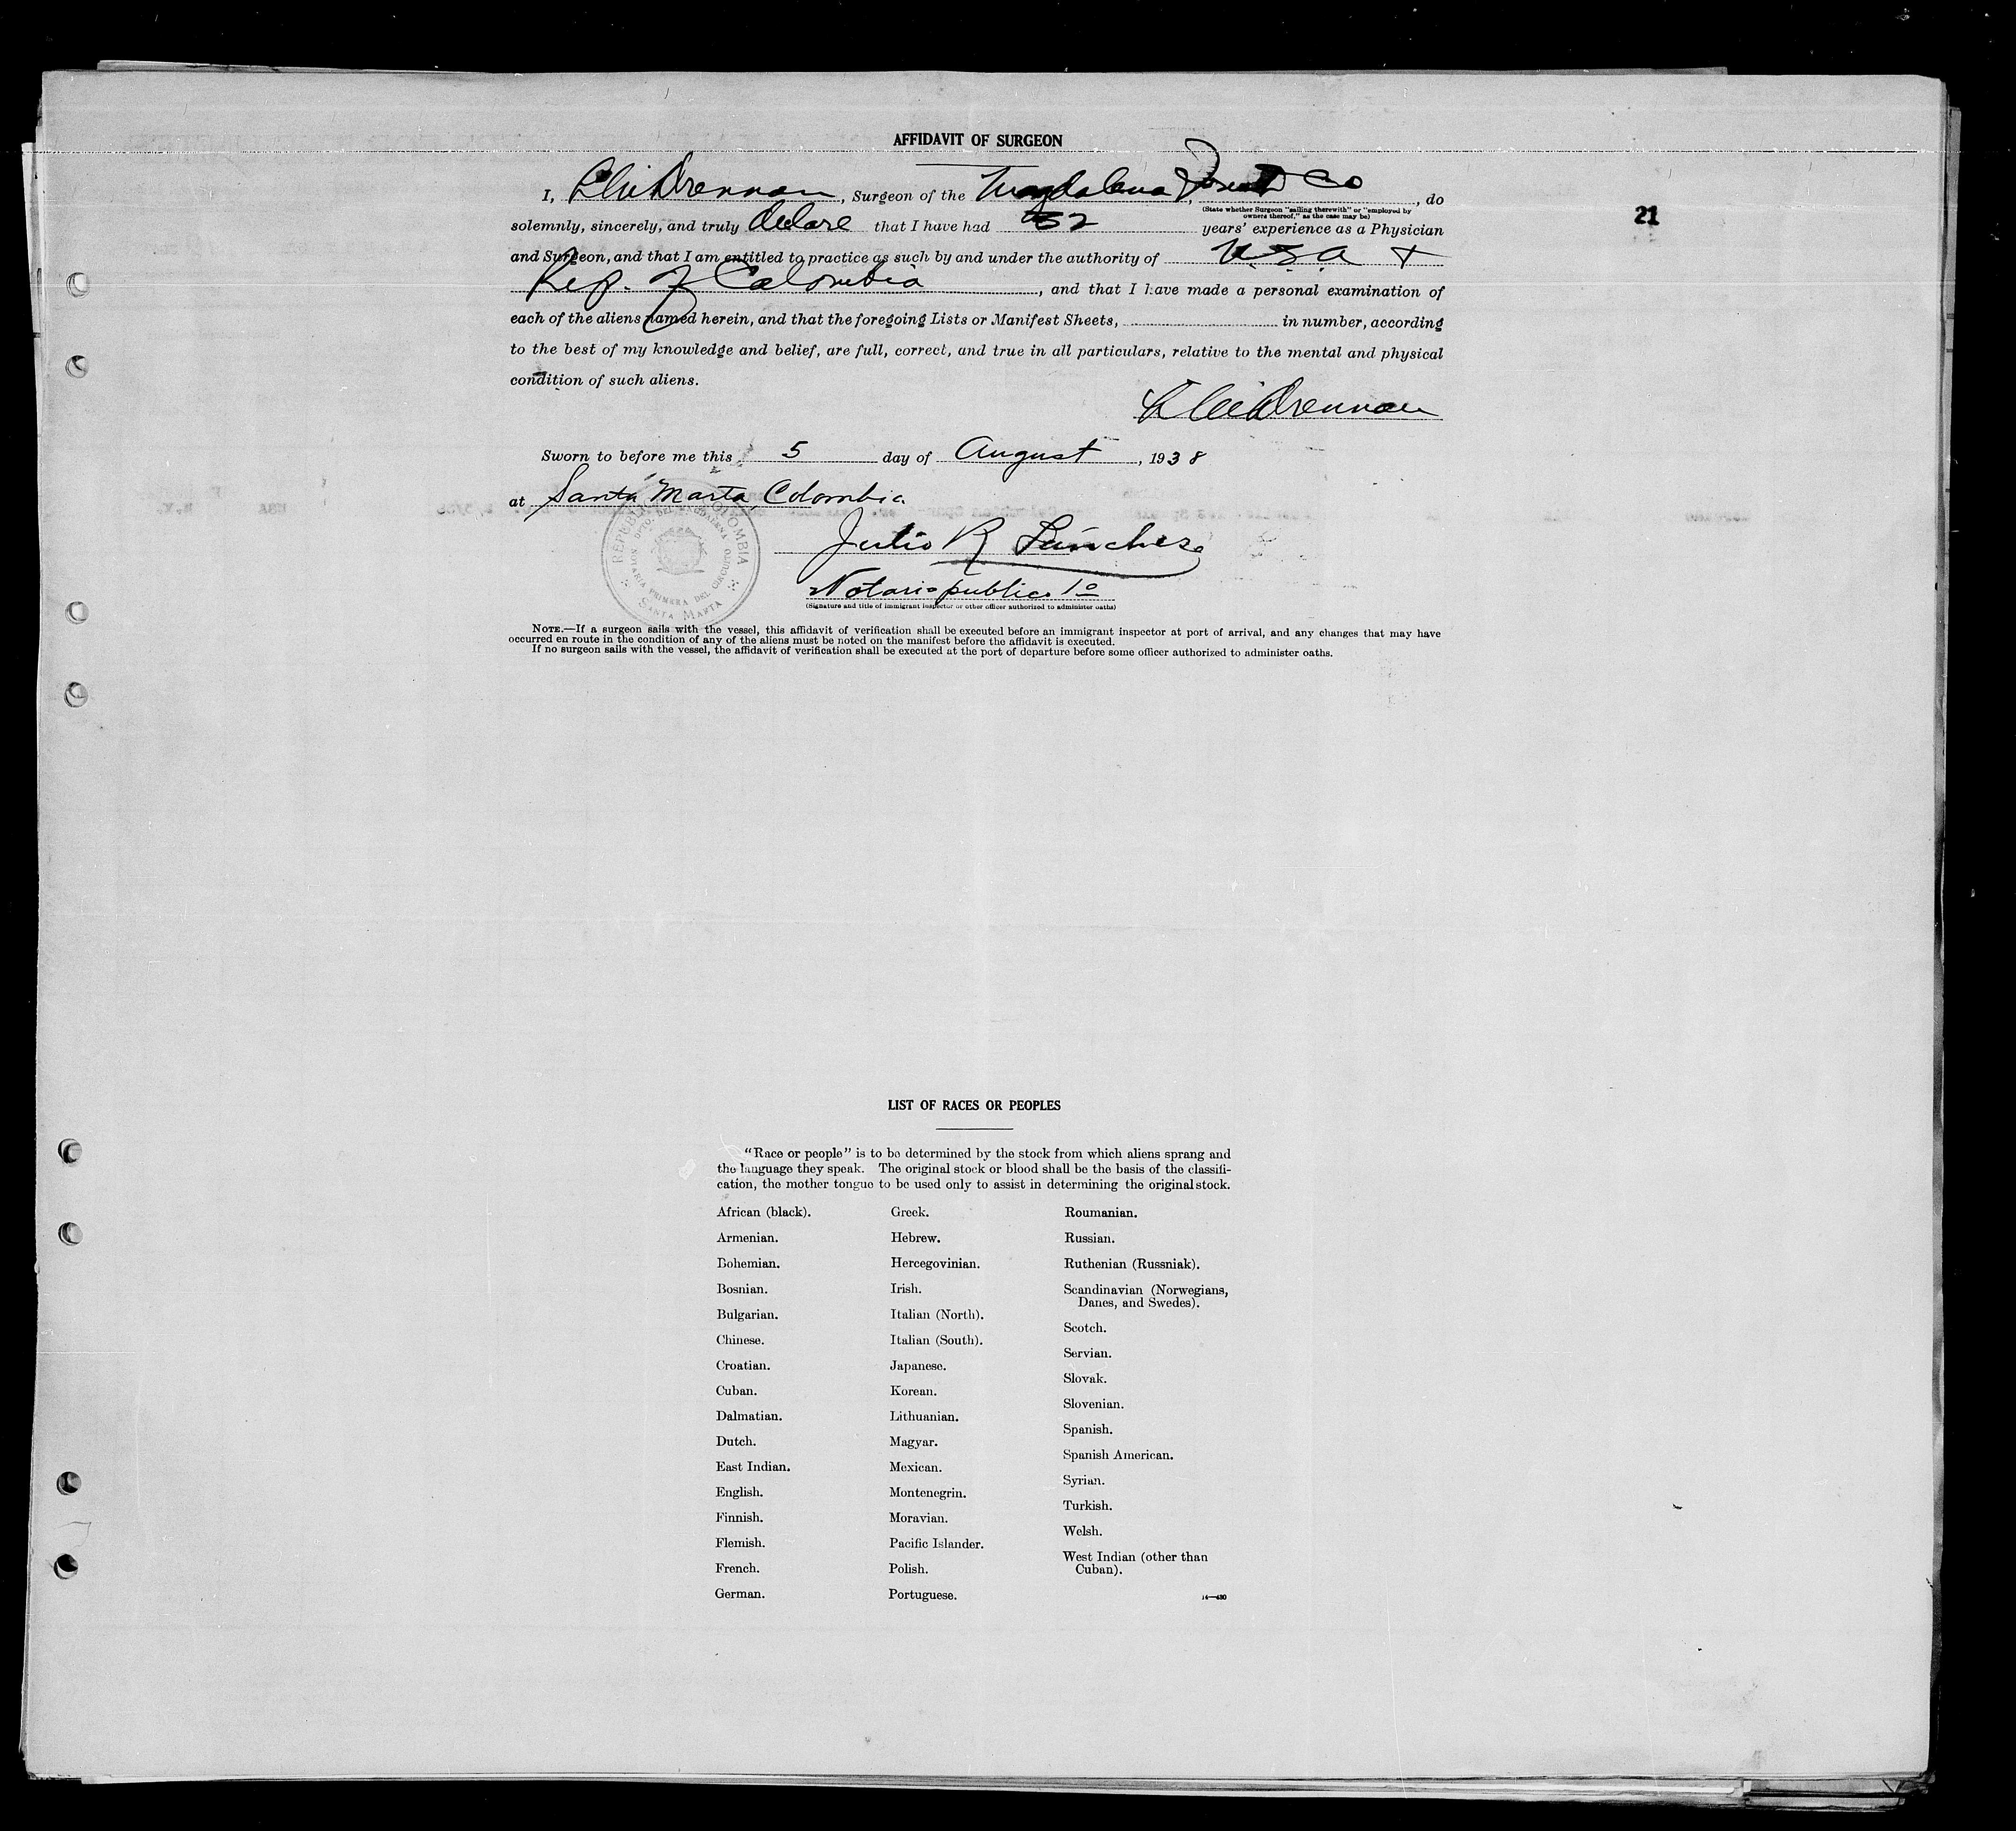 AFFIDAVIT OF SURGEON
I, Drennan, Surgeon of the Magdalena Fruit Co, do
(State whether Surgeon "sailing therewith" or "employed by
owners thereof," as the case may be)
21
solemnly, sincerely, and truly declare that I have had 32 years' experience as a Physician
and Surgeon, and that I am entitled to practice as such by and under the authority of U.S.A +
Rep. of Colombia, and that I have made a personal examination of
each of the aliens named herein, and that the foregoing Lists or Manifest Sheets, in number, according
to the best of my knowledge and belief, are full, correct, and true in all particulars, relative to the mental and physical
condition of such aliens.
Drennan
Sworn to before me this 5 day of August, 1938
at Santa Marta, Colombia.
REPUBLICA COLOMBIA
DPTO. DEL MAGDALENA
NOTARIA PRIMERA DEL CIRCUITO
SANTA MARTA
Julio R Sánchez
Notario publico 1º
(Signature and title of immigrant inspector or other officer authorized to administer oaths)
NOTE.—If a surgeon sails with the vessel, this affidavit of verification shall be executed before an immigrant inspector at port of arrival, and any changes that may have
occurred en route in the condition of any of the aliens must be noted on the manifest before the affidavit is executed.
If no surgeon sails with the vessel, the affidavit of verification shall be executed at the port of departure before some officer authorized to administer oaths.
LIST OF RACES OR PEOPLES
"Race or people" is to be determined by the stock from which aliens sprang and
the language they speak. The original stock or blood shall be the basis of the classifi-
cation, the mother tongue to be used only to assist in determining the original stock.
African (black).
Armenian.
Bohemian.
Bosnian.
Bulgarian.
Chinese.
Croatian.
Cuban.
Dalmatian.
Dutch.
East Indian.
English.
Finnish.
Flemish.
French.
German.
Greek.
Hebrew.
Hercegovinian.
Irish.
Italian (North).
Italian (South).
Japanese.
Korean.
Lithuanian.
Magyar.
Mexican.
Montenegrin.
Moravian.
Pacific Islander.
Polish.
Portuguese.
Roumanian.
Russian.
Ruthenian (Russniak).
Scandinavian (Norwegians,
Danes, and Swedes).
Scotch.
Servian.
Slovak.
Slovenian.
Spanish.
Spanish American.
Syrian.
Turkish.
Welsh.
West Indian (other than
Cuban).
14—430